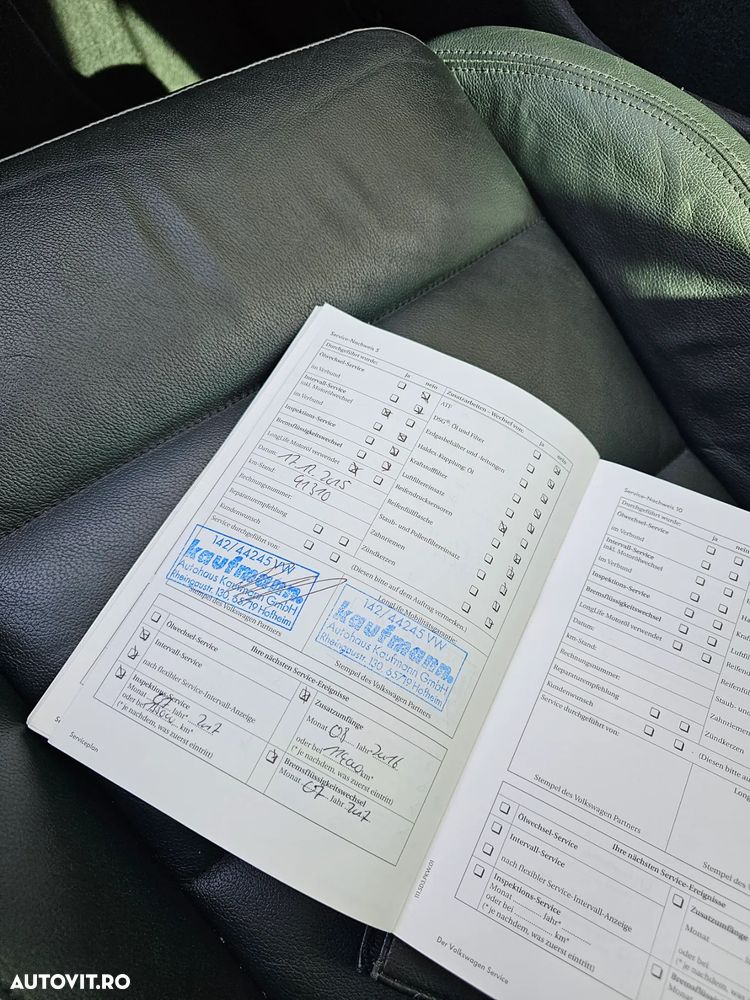 Service-Nachweis
Durchgeführt wurde:
ja nein
Ölwechsel-Service
im Verbund
Intervall-Service
inkl. Motorölwechsel
im Verbund
Inspektions-Service
Bremsflüssigkeitswechsel
LongLife Motoröl verwendet
Datum: 17.11.2015
km-Stand: 91310
Rechnungsnummer:
Reparaturempfehlung
Kundenwunsch
Service durchgeführt von:
Zusatzarbeiten - Wechsel von: ja nein
ATF
DSG®: Öl und Filter
Erdgasbehälter und -leitungen
Haldex-Kupplung: Öl
Kraftstofffilter
Luftfiltereinsatz
Reifendrucksensoren
Reifenfüllflasche
Staub- und Pollenfiltereinsatz
Zahnriemen
Zündkerzen
(Diesen bitte auf dem Auftrag vermerken.)
LongLife Mobilitätsgarantie
142/44245 VW
kaufmann.
Autohaus Kaufmann GmbH
Rheingaustr. 130, 65719 Hofheim
Stempel des Volkswagen Partners
142/44245 VW
kaufmann.
Autohaus Kaufmann GmbH
Rheingaustr. 130, 65719 Hofheim
Stempel des Volkswagen Partners
Ihre nächsten Service-Ereignisse
Ölwechsel-Service
Intervall-Service
nach flexibler Service-Intervall-Anzeige
Inspektions-Service
Monat Jahr* 2017
oder bei km*
(* je nachdem, was zuerst eintritt)
Zusatzumfänge
Monat 08 Jahr 2016
oder bei km*
(* je nachdem, was zuerst eintritt)
Bremsflüssigkeitswechsel
Monat 07 Jahr 2017
Serviceplan
Service-Nachweis 10
Durchgeführt wurde:
ja nein
Ölwechsel-Service
im Verbund
Intervall-Service
inkl. Motorölwechsel
im Verbund
Inspektions-Service
Bremsflüssigkeitswechsel
LongLife Motoröl verwendet
Datum:
km-Stand:
Rechnungsnummer:
Reparaturempfehlung
Kundenwunsch
Service durchgeführt von:
Zahnriemen
Zündkerzen
(Diesen bitte
Stempel des Volkswagen Partners
Ihre nächsten Service-Ereignisse
Ölwechsel-Service
Intervall-Service
nach flexibler Service-Intervall-Anzeige
Inspektions-Service
Monat Jahr*
oder bei km*
(* je nachdem, was zuerst eintritt)
Zusatzumfänge
Monat
oder bei
Der Volkswagen Service
AUTOVIT.RO